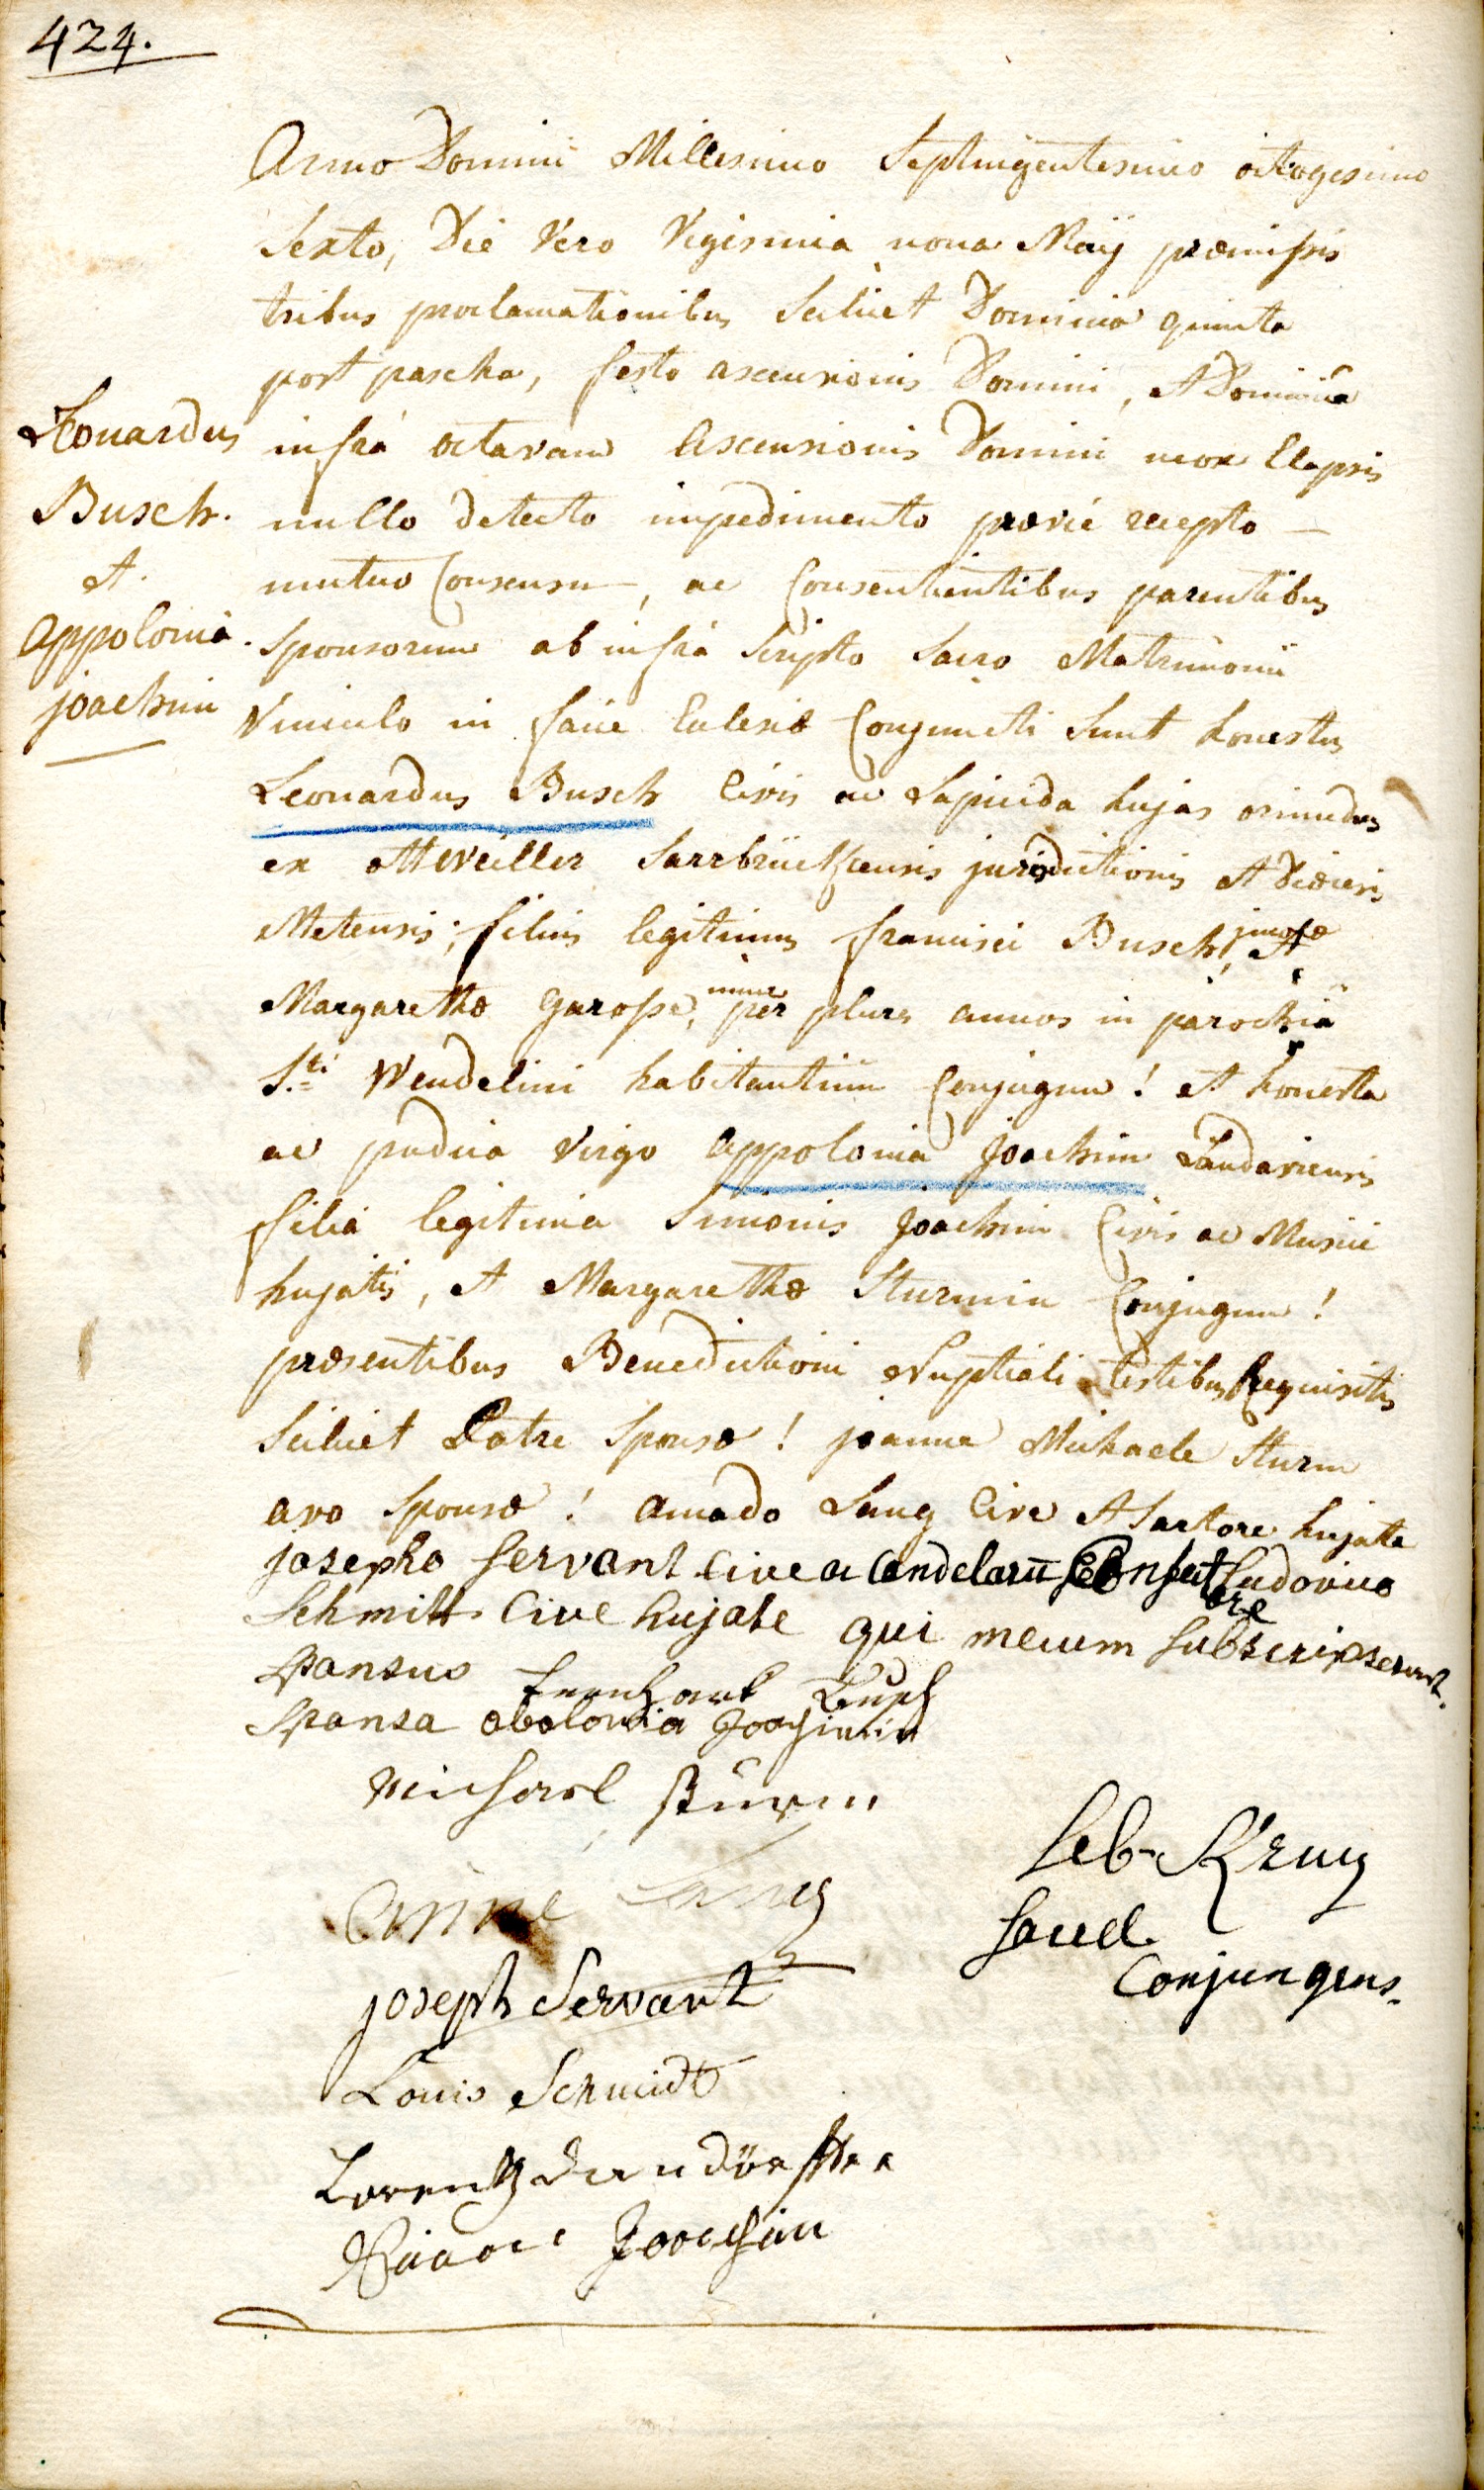 424.
Leonardus
Busch.
et
Appolonia
joachim
Anno Domini Millesimo Septuigentesimo octogesimo
Sexto, Die Vero Vigesima nona Maij præmissis
tribus proclamationibus Scilicet Dominica quinta
post pascha, festo ascensionis Domini, et Dominica
infrà octavam Ascensionis Domini mox Elapsis
nullo detecto impedimento prævié recepto —
mutuo Consensu, ac Consentientibus parentibus
Sponsorum ab infrà Scripto Sacro Matrimonii
Vinculo in facie Eclesiæ Conjuncti Sunt honestus
Leonardus Busch Civis ac Lapicida hujas oriundus
ex ottweiller Sarrbrückensis jurisdictionis et Diœcesis
Metensis; filius legitimus francisci Busch, et
Margarethæ, nunc per plures annos in parochiâ
S.ti Wendelini habitantium Conjugum! et honesta
ac pudica virgo Appolonia Joachim Landaviensis
filia legitima Simonis Joachim Civis ac Musici
hujatis, et Margarethæ Sturmin Conjugum!
præsentibus Benedictioni Nuptiali testibus Requisitis
Scilicet Patre Sponsæ! joanne Michaele Sturm
avo Sponsæ! amado Lang Cive et Sartore hujate
josepho Servant Cive ac Candelarū Confectore Ludovico
Schmitt Cive hujate qui mecum Subscripserunt.
Sponsus Leonhart Busch
Sponsa abolonia Joachimin
Michael Sturm
Lang
joseph Servant
Louis Schmidt
Lorentz
Joachim
Seb. Krug
Conjungens.